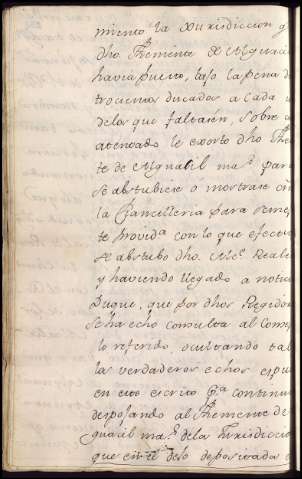 miento la Jurisdiccion q
dho Themente de Alguac
havia puesto, bajo la pena d
trocientos ducados a cada
delos que faltasen, sobre
atentado le exorto dho The
te de Alguacil maʳ. para
se abstubiese o mostrase
la Chancilleria para
te providᵃ con lo que efectiv
se abstubo dho. Alcᵉ. Reale
y haviendo llegado a noti
Duque, que por dhos Regidor
se ha echo consulta al Cons
lo referido, ocultando tal
las verdaderos echos
en este escrito pᵃ continu
despojando al Themente de
guacil maʳ. dela Jurisdiccio
que en el delo depositada